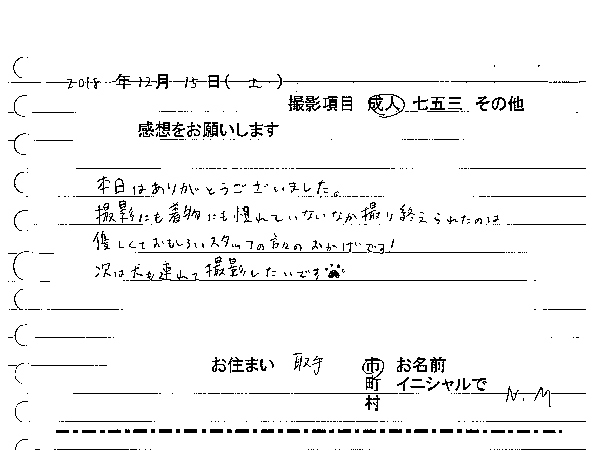 2018 年 12 月 15 日 ( 土 )
撮影項目 成人 七五三 その他
感想をお願いします
本日はありがとうございました。
撮影にも着物にも慣れていないなか撮り終えられたのは
優しくておもしろいスタッフの方々のおかげです!
次は犬も連れて撮影したいです
お住まい 取手 市 お名前
町 イニシャルで
村 N.M